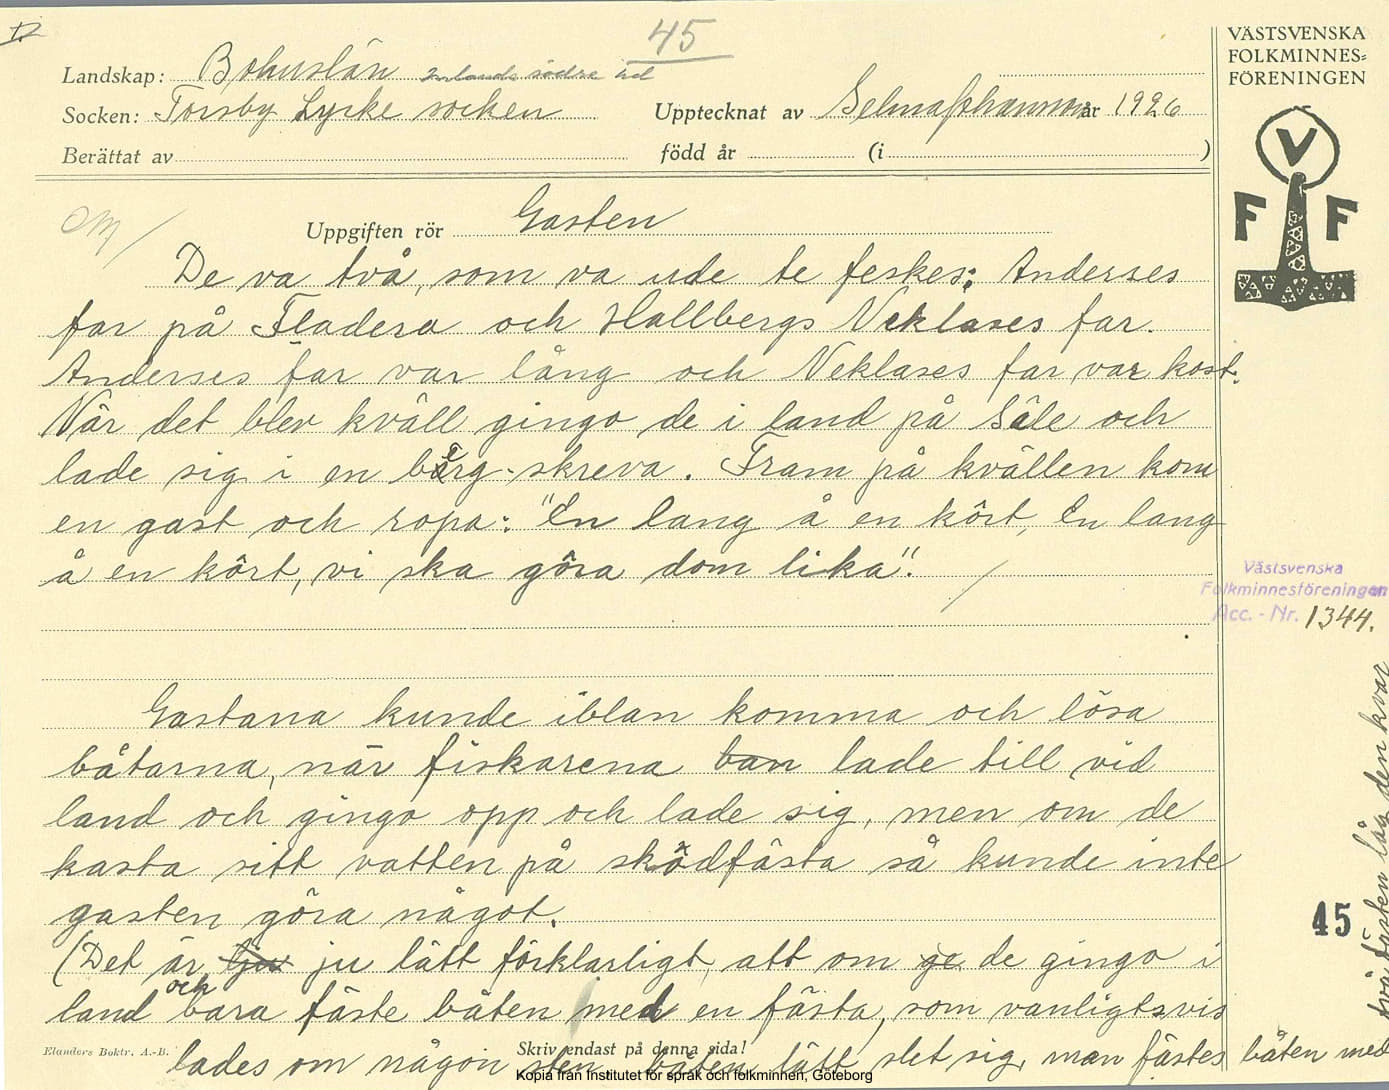 45
VÄSTSVENSKA
FOLKMINNES-
FÖRENINGEN
V
F F
Landskap: Bohuslän Inlands södra hd
Socken: Torsby Lycke socken Upptecknat av Selma Johansson år 1926
Berättat av född år (i )
Uppgiften rör Gasten
De va två, som va ude te feskes: Anderses
far på Fladera och Hallbergs Neklases far.
Anderses far var lång och Neklases far var kost.
När det blev kväll gingo de i land på Säle och
lade sig i en bärg-skreva. Fram på kvällen kom
en gast och ropa: "En lang å en kôrt, En lang
å en kôrt, vi ska gôra dom lika".
Västsvenska
Folkminnesföreningen
Acc. - Nr. 1344.
Gastana kunde iblan komma och lösa
båtarna, när fiskarena ban lade till vid
land och gingo opp och lade sig, men om de
kasta sitt vatten på skôdfästa så kunde inte
gasten gôra något.
(Det är ju lätt förklarligt, att om ge de gingo i
land och bara fäste båten med en fästa, som vanligtsvis
lades om någon sten båten lätt slet sig, man fästes båten med
två fästen låg den kvar
45
Elanders Boktr. A.-B. Skriv endast på denna sida!
Kopia från Institutet för språk och folkminnen, Göteborg